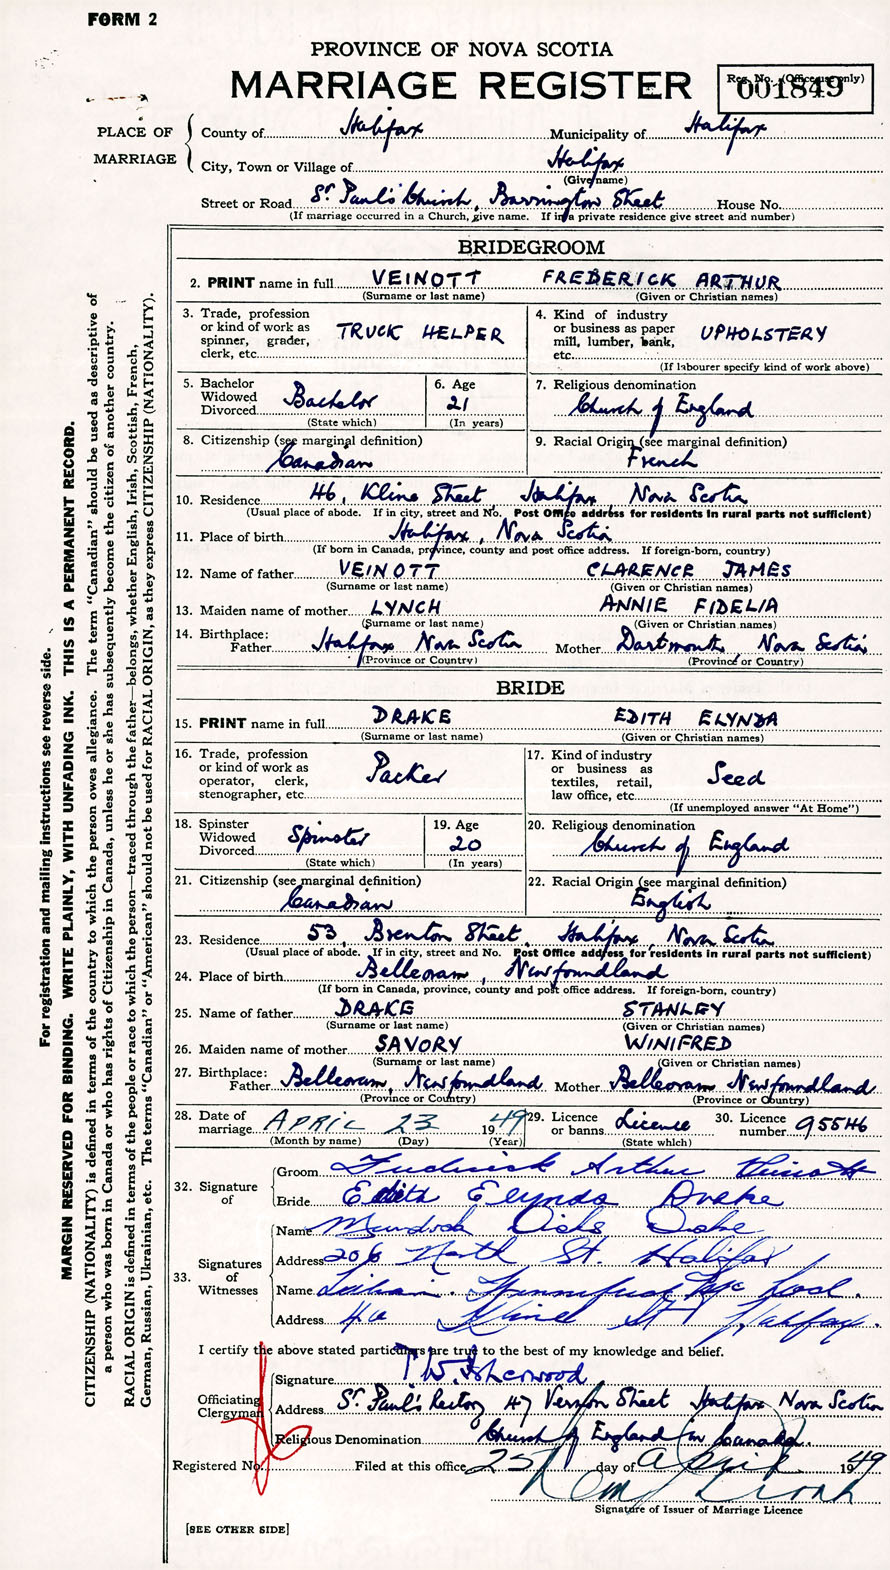 FORM 2
PROVINCE OF NOVA SCOTIA
MARRIAGE REGISTER
Reg. No. (Office use only)
001849
PLACE OF MARRIAGE
County of Halifax Municipality of Halifax
City, Town or Village of Halifax
(Give name)
Street or Road St Paul's Church, Barrington Street House No.
(If marriage occurred in a Church, give name. If in a private residence give street and number)
BRIDEGROOM
2. PRINT name in full VEINOTT FREDERICK ARTHUR
(Surname or last name) (Given or Christian names)
3. Trade, profession or kind of work as spinner, grader, clerk, etc. TRUCK HELPER
4. Kind of industry or business as paper mill, lumber, bank, etc. UPHOLSTERY
(If labourer specify kind of work above)
5. Bachelor Widowed Divorced Bachelor
(State which)
6. Age 21
(In years)
7. Religious denomination
Church of England
8. Citizenship (see marginal definition)
Canadian
9. Racial Origin (see marginal definition)
French
10. Residence 46, Kline Street, Halifax, Nova Scotia
(Usual place of abode. If in city, street and No. Post Office address for residents in rural parts not sufficient)
11. Place of birth Halifax, Nova Scotia
(If born in Canada, province, county and post office address. If foreign-born, country)
12. Name of father VEINOTT CLARENCE JAMES
(Surname or last name) (Given or Christian names)
13. Maiden name of mother LYNCH ANNIE FIDELIA
(Surname or last name) (Given or Christian names)
14. Birthplace: Father Halifax Nova Scotia Mother Dartmouth, Nova Scotia
(Province or Country) (Province or Country)
BRIDE
15. PRINT name in full DRAKE EDITH ELYNDA
(Surname or last name) (Given or Christian names)
16. Trade, profession or kind of work as operator, clerk, stenographer, etc. Packer
17. Kind of industry or business as textiles, retail, law office, etc. Seed
(If unemployed answer "At Home")
18. Spinster Widowed Divorced Spinster
(State which)
19. Age 20
(In years)
20. Religious denomination
Church of England
21. Citizenship (see marginal definition)
Canadian
22. Racial Origin (see marginal definition)
English
23. Residence 53, Brenton Street, Halifax, Nova Scotia
(Usual place of abode. If in city, street and No. Post Office address for residents in rural parts not sufficient)
24. Place of birth Belleoram, Newfoundland
(If born in Canada, province, county and post office address. If foreign-born, country)
25. Name of father DRAKE STANLEY
(Surname or last name) (Given or Christian names)
26. Maiden name of mother SAVORY WINIFRED
(Surname or last name) (Given or Christian names)
27. Birthplace: Father Belleoram, Newfoundland Mother Belleoram Newfoundland
(Province or Country) (Province or Country)
28. Date of marriage APRIL 23 1949
(Month by name) (Day) (Year)
29. Licence or banns Licence
(State which)
30. Licence number 95546
32. Signature of
Groom Frederick Arthur Veinott
Bride Edith Elynda Drake
33. Signatures of Witnesses
Name Murdock Drake
Address 206 North St. Halifax
Name
Address 46 St Halifax.
I certify the above stated particulars are true to the best of my knowledge and belief.
Officiating Clergyman
Signature T W Isherwood
Address St Paul's Rectory 47 Vernon Street Halifax Nova Scotia
Religious Denomination Church of England in Canada.
Registered No. Filed at this office 25 day of April 1949
Signature of Issuer of Marriage Licence
[SEE OTHER SIDE]
For registration and mailing instructions see reverse side.
MARGIN RESERVED FOR BINDING. WRITE PLAINLY, WITH UNFADING INK. THIS IS A PERMANENT RECORD.
CITIZENSHIP (NATIONALITY) is defined in terms of the country to which the person owes allegiance. The term "Canadian" should be used as descriptive of
a person who was born in Canada or who has rights of Citizenship in Canada, unless he or she has subsequently become the citizen of another country.
RACIAL ORIGIN is defined in terms of the people or race to which the person—traced through the father—belongs, whether English, Irish, Scottish, French,
German, Russian, Ukrainian, etc. The terms "Canadian" or "American" should not be used for RACIAL ORIGIN, as they express CITIZENSHIP (NATIONALITY).